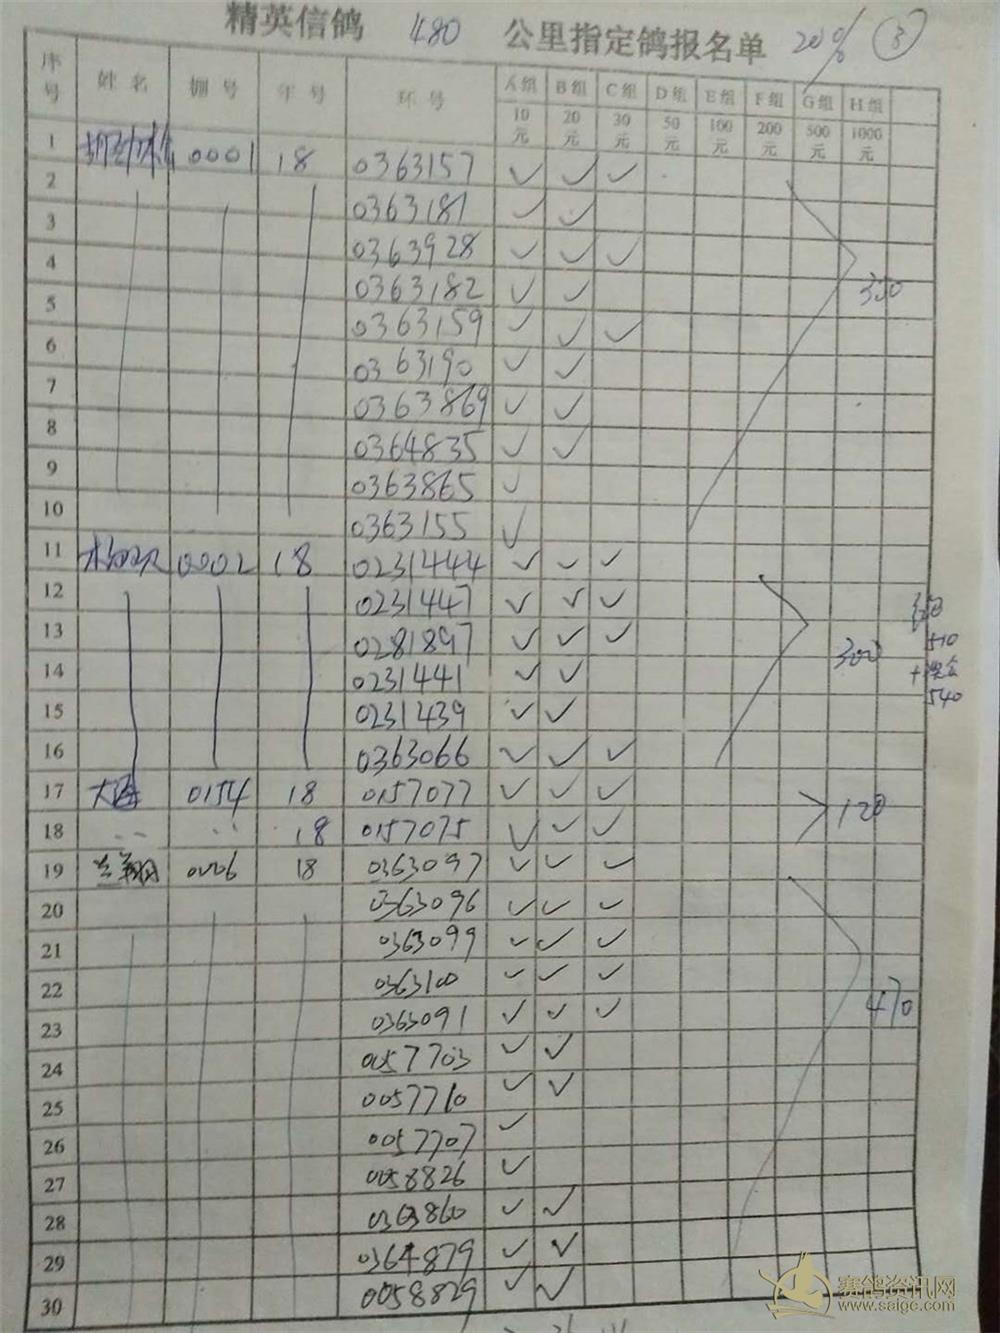 精英信鸽 480 公里指定鸽报名单 20% ③
序号 姓名 棚号 年号 环号 A组 B组 C组 D组 E组 F组 G组 H组
10元 20元 30元 50元 100元 200元 500元 1000元
1 0001 18 0363157 ✓ ✓ ✓
2 0363181 ✓ ✓
3 0363928 ✓ ✓ ✓
4 0363182 ✓ ✓ 350
5 0363159 ✓ ✓ ✓
6 0363190 ✓ ✓
7 0363869 ✓ ✓
8 0364835 ✓ ✓
9 0363865 ✓
10 0363155 ✓
11 0002 18 0231444 ✓ ✓ ✓
12 0231447 ✓ ✓ ✓
13 0281897 ✓ ✓ ✓ 300 510
14 0231441 ✓ ✓ +现金
15 0231439 ✓ ✓ 540
16 0363066 ✓ ✓ ✓
17 大海 0154 18 0157077 ✓ ✓ ✓ 120
18 18 0157075 ✓ ✓ ✓
19 兰翔 0006 18 0363097 ✓ ✓ ✓
20 0363096 ✓ ✓ ✓
21 0363099 ✓ ✓ ✓
22 0363100 ✓ ✓ ✓ 470
23 0363091 ✓ ✓ ✓
24 0057703 ✓ ✓
25 0057710 ✓ ✓
26 0057707 ✓
27 0058826 ✓
28 0363860 ✓ ✓
29 0364879 ✓ ✓
30 0058829 ✓ ✓
赛鸽资讯网
www.saige.com